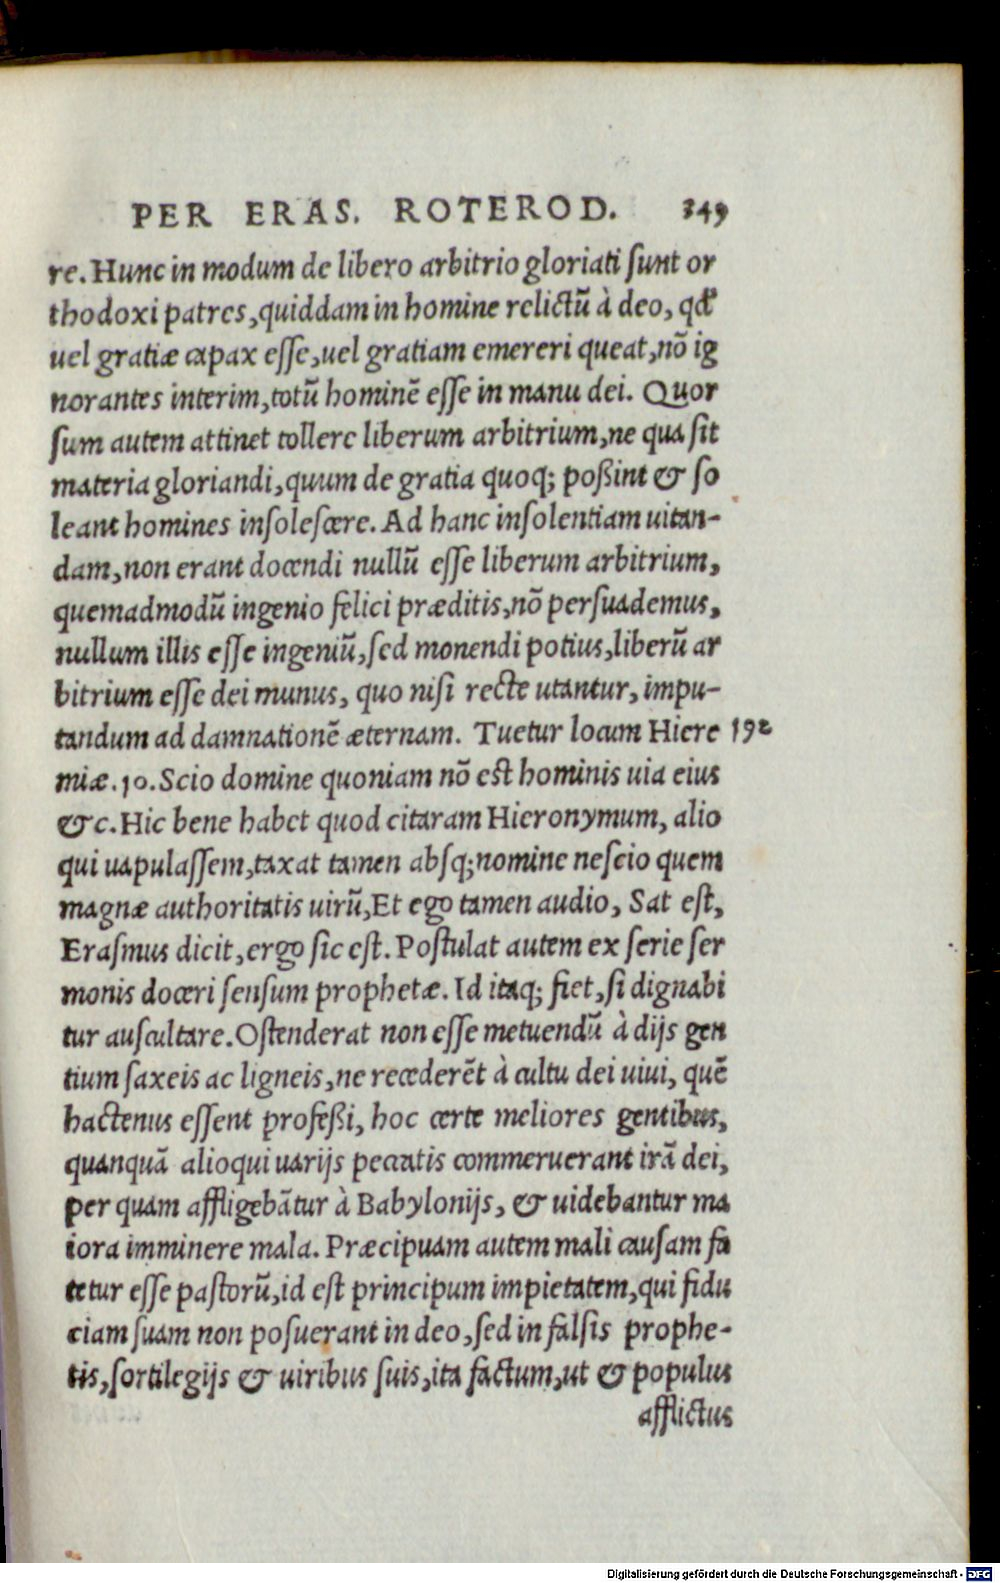 PER ERAS. ROTEROD. 349
re. Hunc in modum de libero arbitrio gloriati ſunt or
thodoxi patres, quiddam in homine relictũ à deo, qđ
uel gratiæ capax eſſe, uel gratiam emereri queat, nõ ig
norantes interim, totũ hominẽ eſſe in manu dei. Quor
ſum autem attinet tollere liberum arbitrium, ne qua ſit
materia gloriandi, quum de gratia quoq; poßint & ſo
leant homines inſoleſcere. Ad hanc inſolentiam uitan-
dam, non erant docendi nullũ eſſe liberum arbitrium,
quemadmodũ ingenio felici præditis, nõ perſuademus,
nullum illis eſſe ingeniũ, ſed monendi potius, liberũ ar
bitrium eſſe dei munus, quo niſi recte utantur, impu-
tandum ad damnationẽ æternam. Tuetur locum Hiere 192
miæ. 10. Scio domine quoniam nõ eſt hominis uia eius
&c. Hic bene habet quod citaram Hieronymum, alio
qui uapulaſſem, taxat tamen abſq; nomine neſcio quem
magnæ authoritatis uirũ, Et ego tamen audio, Sat eſt,
Eraſmus dicit, ergo ſic eſt. Poſtulat autem ex ſerie ſer
monis doceri ſenſum prophetæ. Id itaq; fiet, ſi dignabi
tur auſcultare. Oſtenderat non eſſe metuendũ à dijs gen
tium ſaxeis ac ligneis, ne recederẽt à cultu dei uiui, quẽ
hactenus eſſent profeßi, hoc certe meliores gentibus,
quanquã alioqui uarijs peccatis commeruerant irã dei,
per quam affligebãtur à Babylonijs, & uidebantur ma
iora imminere mala. Præcipuam autem mali cauſam fa
tetur eſſe paſtorũ, id eſt principum impietatem, qui fidu
ciam ſuam non poſuerant in deo, ſed in falſis prophe-
tis, ſortilegijs & uiribus ſuis, ita factum, ut & populus
afflictus
Digitalisierung gefördert durch die Deutsche Forschungsgemeinschaft - DFG